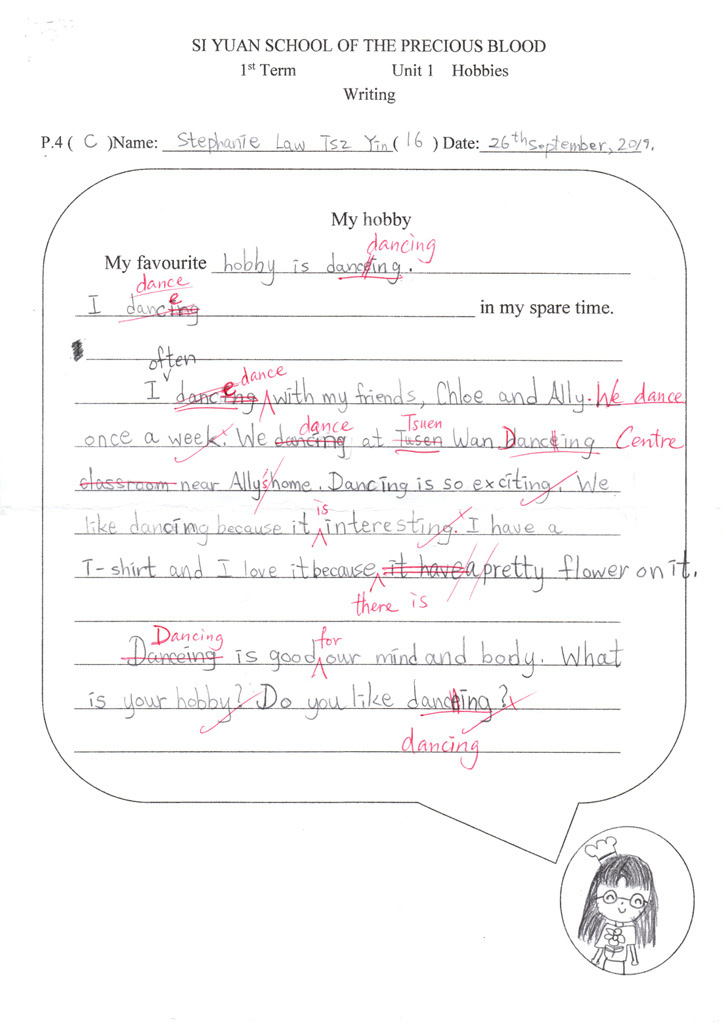 SI YUAN SCHOOL OF THE PRECIOUS BLOOD
1st Term Unit 1 Hobbies
Writing
P.4 ( C )Name: Stephanie Law Tsz Yin ( 16 ) Date: 26th September, 2019.
My hobby
dancing
My favourite hobby is danceing.
dance
I danceing in my spare time.
often
dance
I danceing with my friends, Chloe and Ally. We dance
dance Tsuen
once a week. We dancing at Tusen Wan Dancing Centre
classroom near Ally's home. Dancing is so exciting. We
is
like dancing because it interesting. I have a
T-shirt and I love it because it have a pretty flower on it.
there is
Dancing for
Danceing is good our mind and body. What
is your hobby? Do you like dancing?
dancing